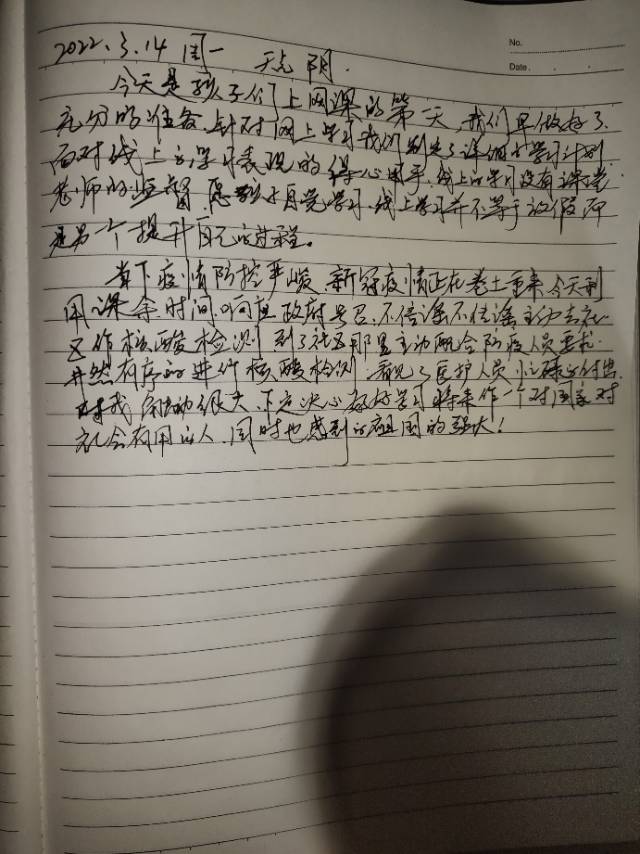 No.
Date.
2022.3.14 周一 天气 阴.
今天是孩子们上网课的第一天,我们早做好了
充分的准备.针对网上学习我们制定了详细的学习计划
面对线上的学习表现的得心用手.线上的学习没有课堂
老师的监督.愿孩子自觉学习.线上学习并不等于放假而
是另一个提升自己的过程。
当下疫情防控严峻.新冠疫情正在卷土重来今天利
用课余时间.响应政府号召.不信谣不传谣主动去社
区作核酸检测.到了社区那里主动配合防疫人员要求.
井然有序的进行核酸检测.看见了医护人员忙碌的付出.
对我触动很大.下定决心好好学习将来作一个对国家对
社会有用的人.同时也感到的祖国的强大!